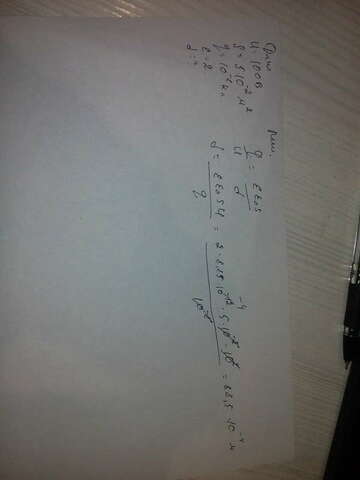 Дано
U = 100 В
S = 5·10⁻² м²
q = 10⁻⁸ Кл
ε = 2
d = ?
Реш.
q/U = εε₀S/d
d = εε₀SU/q = 2·8,85·10⁻¹²·5·10⁻²·10²/10⁻⁸ = 88,5·10⁻⁴ м